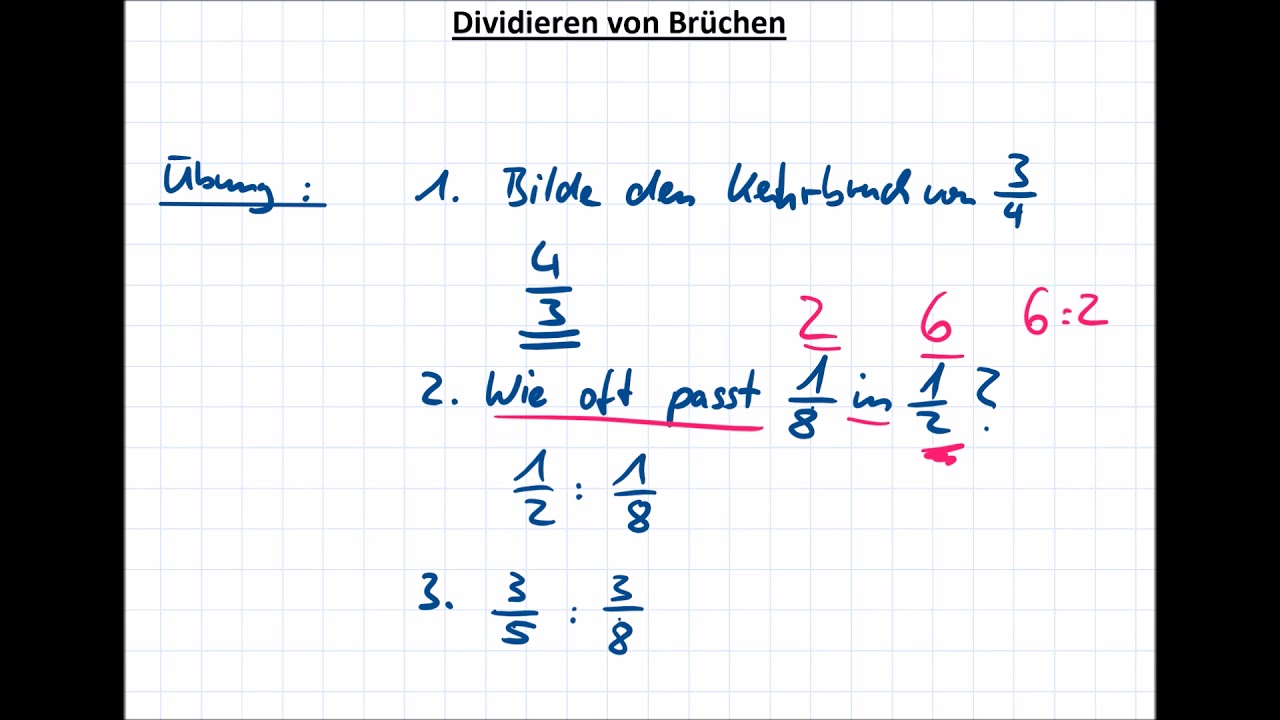 Dividieren von Brüchen
Übung : 1. Bilde den Kehrbruch von 3/4
4/3
2 6 6:2
2. Wie oft passt 1/8 in 1/2 ?
1/2 : 1/8
3. 3/5 : 3/8